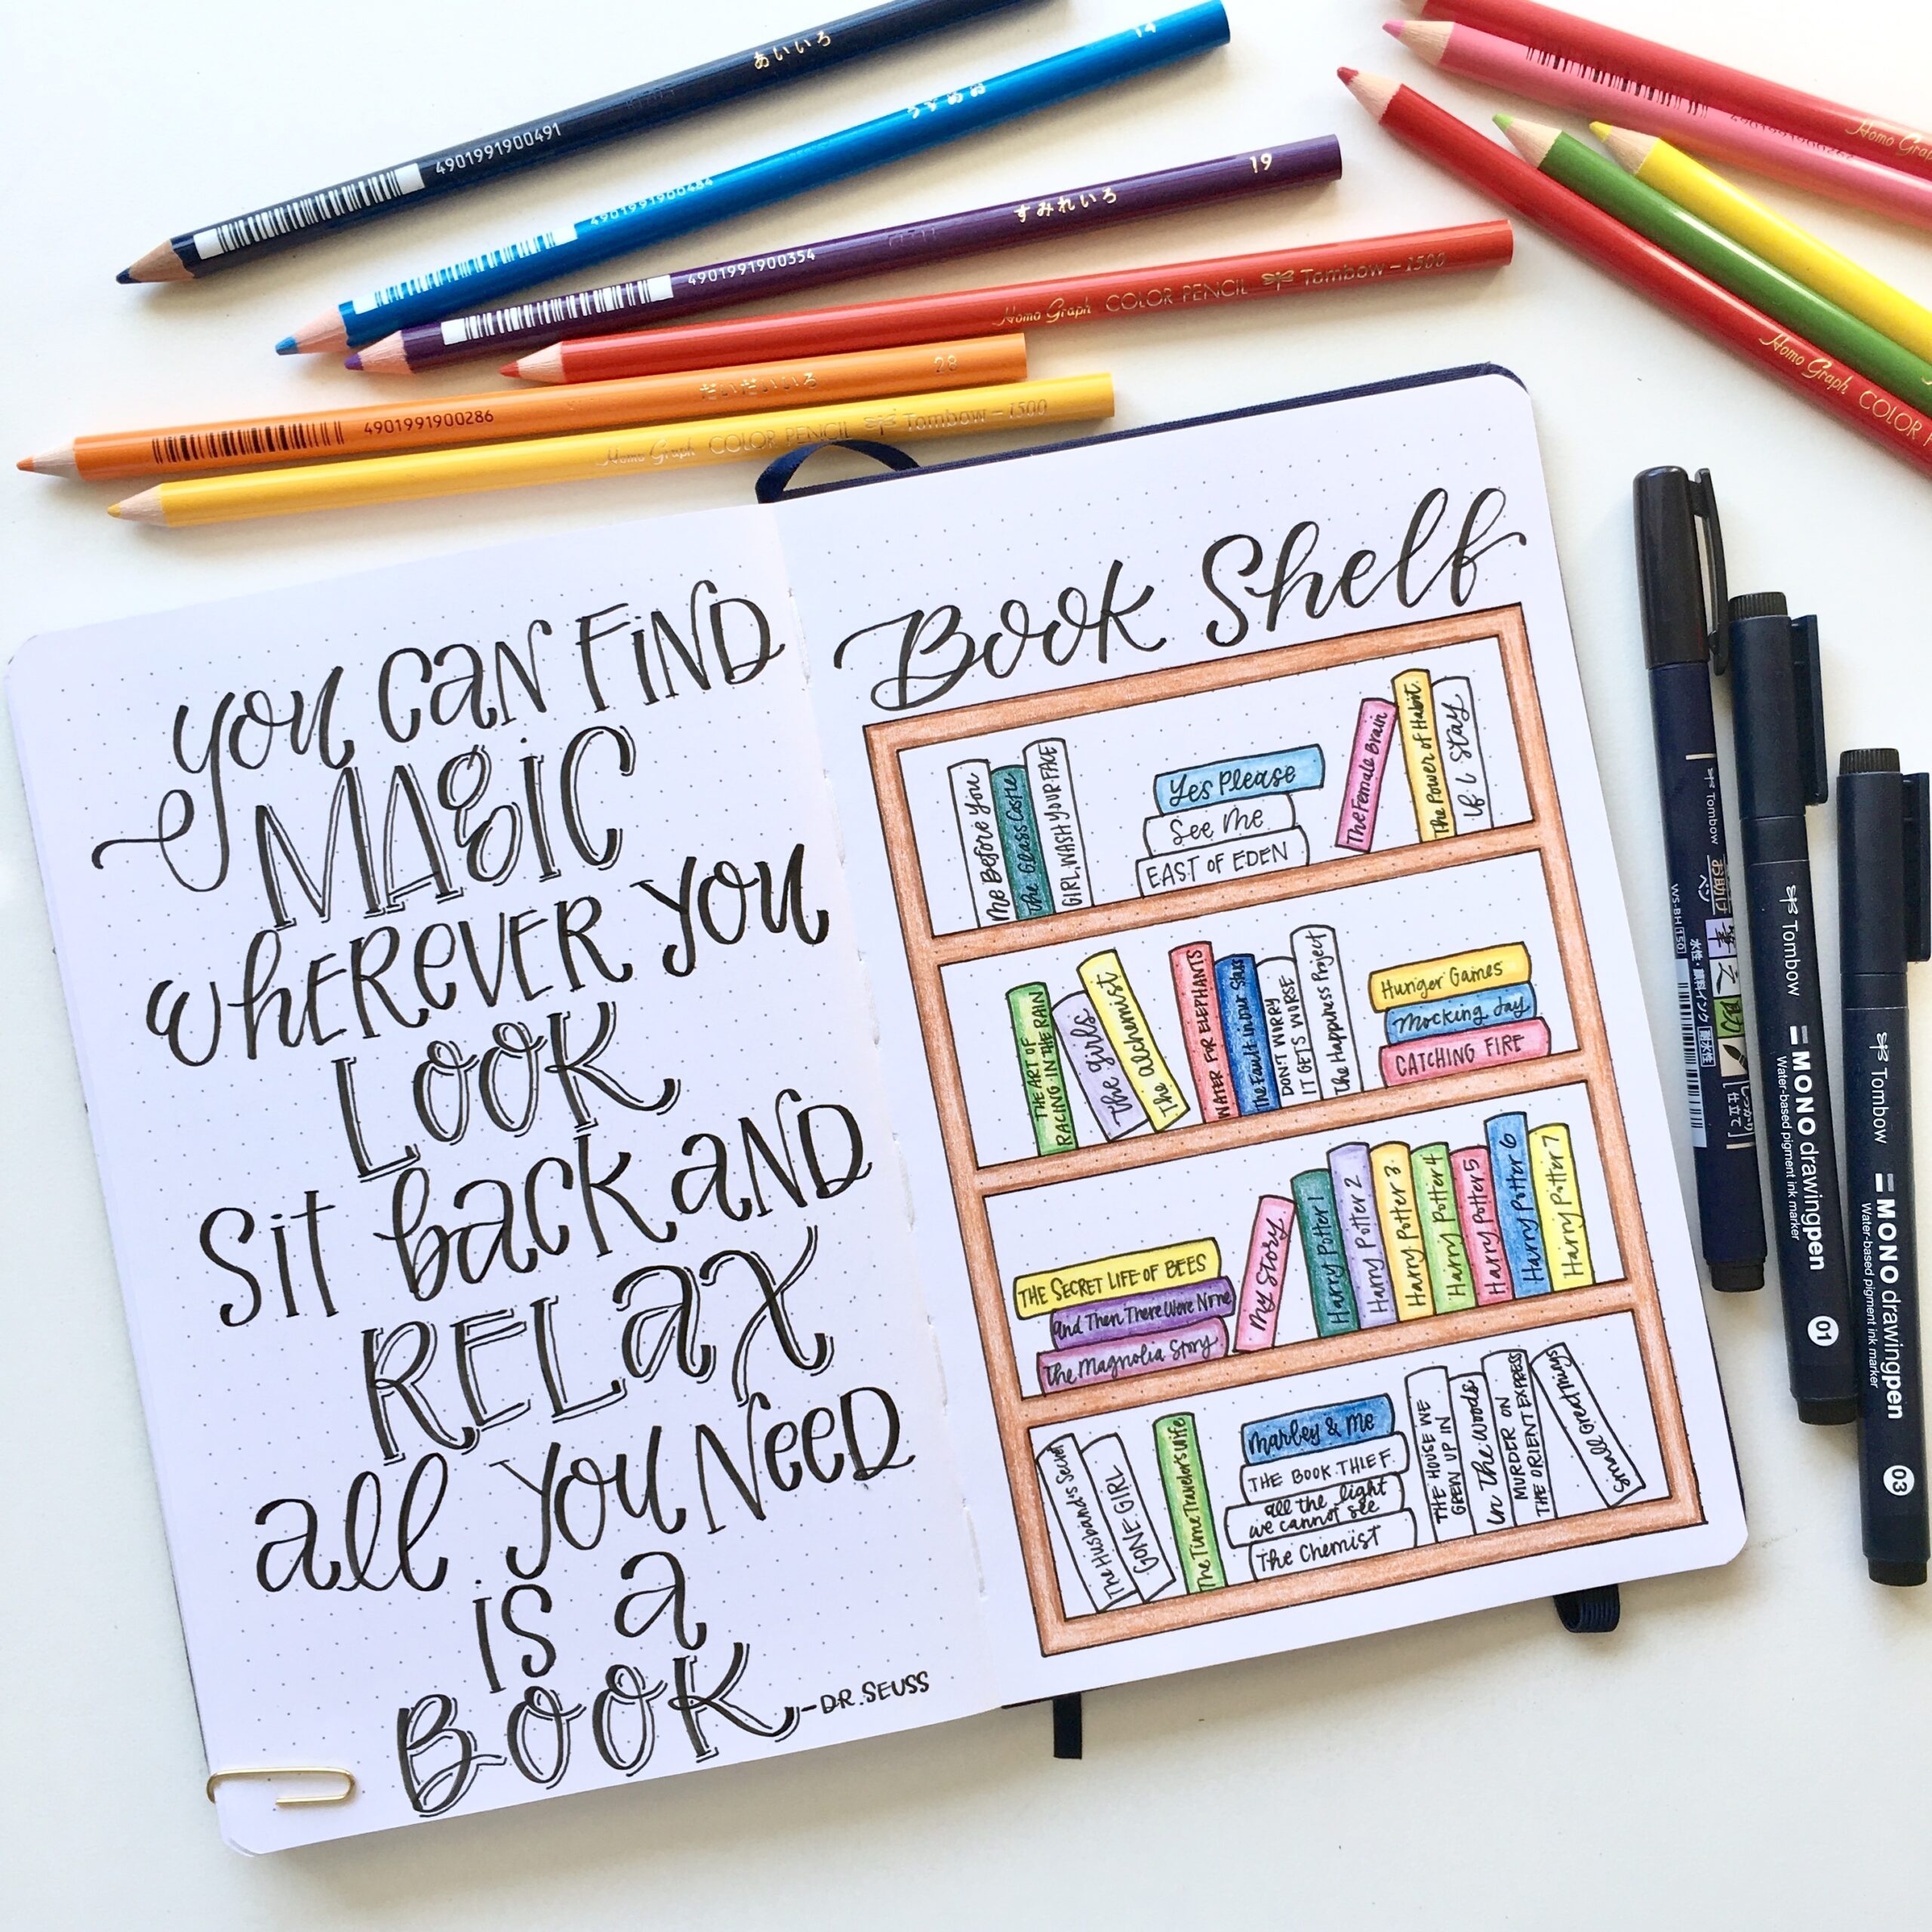 あいいろ
4901991900491
14
うすあお
4901991900484
19
すみれいろ
4901991900354
Homo Graph COLOR PENCIL Tombow-1500
28
だいだいいろ
4901991900286
Homo Graph COLOR PENCIL Tombow-1500
Homo Graph
Homo Graph COLOR
you can find
magic
wherever you
look
Sit back and
relax
all you need
is a
book
-DR. SEUSS
Book Shelf
Me Before You
The Glass Castle
GIRL, WASH YOUR FACE
Yes Please
See Me
EAST OF EDEN
The Female Brain
The Power of Habit
If I Stay
THE ART OF
RACING IN THE RAIN
The Girls
The Alchemist
WATER FOR ELEPHANTS
The Fault in Our Stars
DON'T WORRY
IT GETS WORSE
The Happiness Project
Hunger Games
Mocking Jay
CATCHING FIRE
THE SECRET LIFE OF BEES
And Then There Were None
The Magnolia Story
My Story
Harry Potter 1
Harry Potter 2
Harry Potter 3
Harry Potter 4
Harry Potter 5
Harry Potter 6
Harry Potter 7
The Husband's Secret
GONE GIRL
The Time Travelors Wife
Marley & Me
THE BOOK THIEF
all the light
we cannot see
The Chemist
THE HOUSE WE
GREW UP IN
In the Woods
MURDER ON
THE ORIENT EXPRESS
Small Great Things
Tombow
WS-BH(150)
水性・顔料インク
Tombow
MONO drawingpen
Water-based pigment ink marker
01
Tombow
MONO drawingpen
Water-based pigment ink marker
03